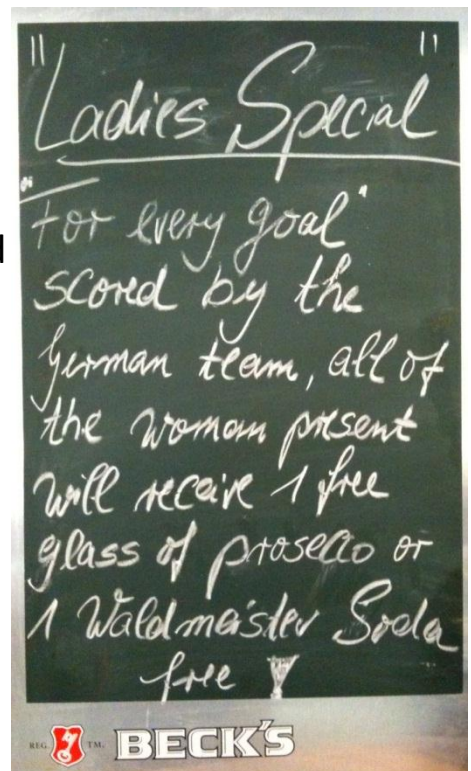 "Ladies Special"
For every goal
scored by the
German team, all of
the woman present
will receive 1 free
glass of prosecco or
1 Waldmeister Soda
free
REG. TM. BECK'S